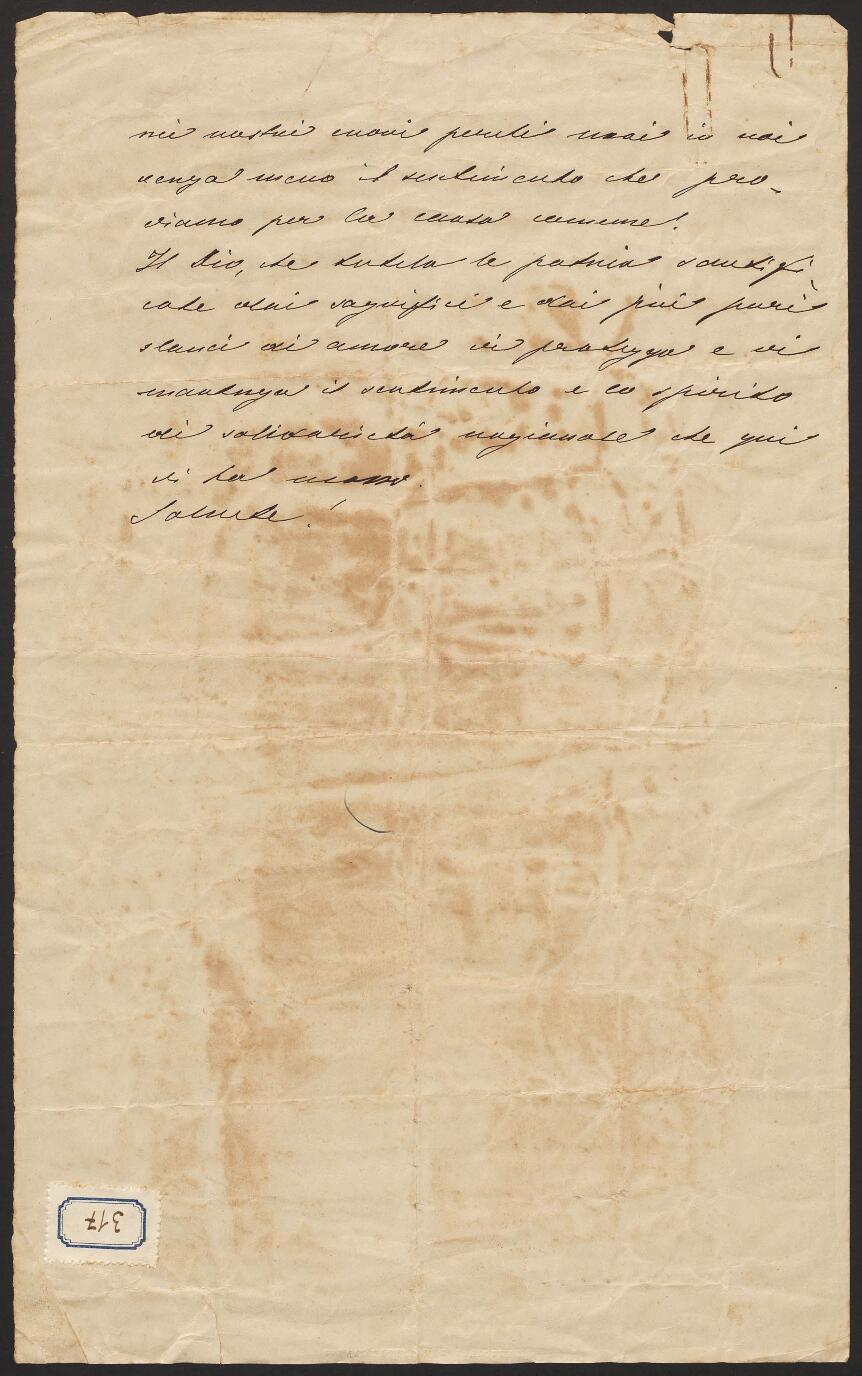 nei nostri cuori perchè mai in noi
venga meno il sentimento che pro-
viamo per la causa comune!
Il Dio, che tutela le patrie santifi
cate dai sagrifici e dai più puri
slanci di amore vi protegga e vi
mantenga il sentimento e lo spirito
di solidarietà nazionale che qui
vi ha mosso.
Salute!
317